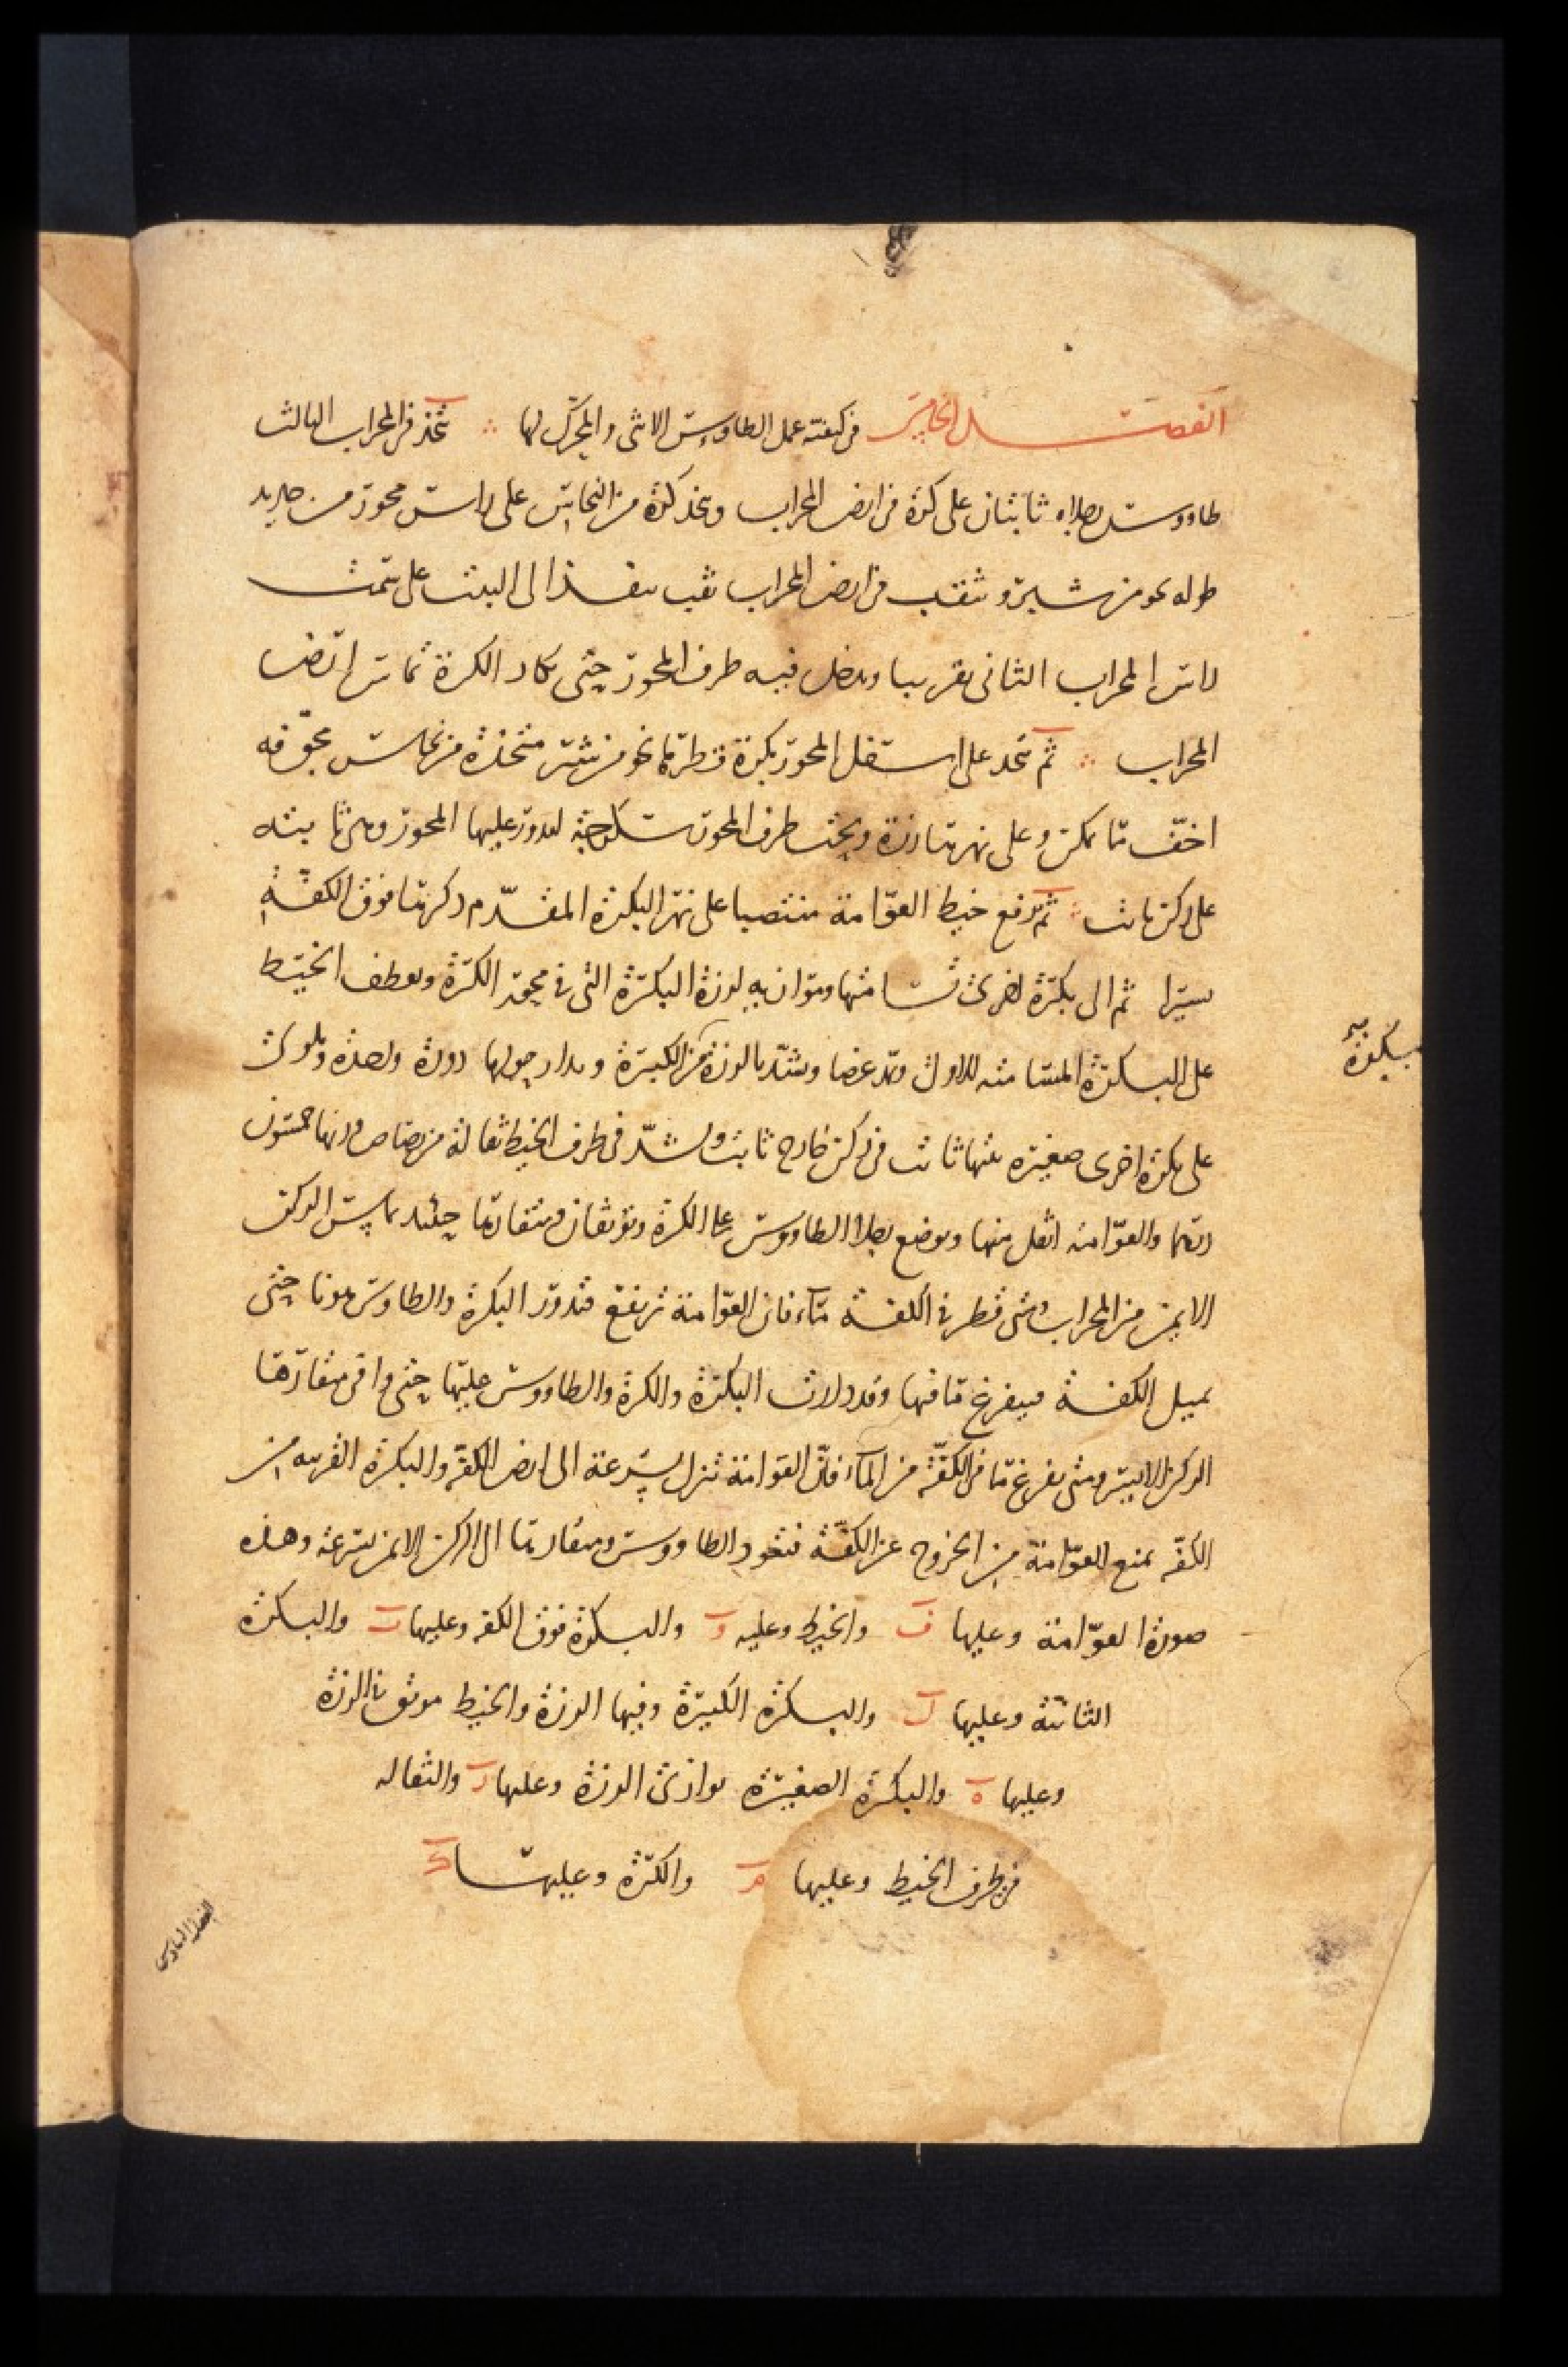 الفصل الخامس في كيفية عمل الطاووس الانثى والمحرك لها يتخذ في المحراب الثالث
طاووس رجلاه ثابتتان على كرة في ارض المحراب ويتخذ كرة من النحاس على راس محور من حديد
طوله نحو من شبر ويثقب في ارض المحراب ثقب ينفذ الى البيت على سمت
راس المحراب الثاني تقريبا ويدخل فيه طرف المحور حتى تكاد الكرة تماس ارض
المحراب ثم يتخذ على اسفل المحور بكرة قطرها نحو من شبر متخذة من نحاس مجوفة
اخف ما يمكن وعلى نهرها رزة وتحت طرف المحور سكرجة ليدور عليها المحور وهي ثابتة
على ركن ثابت ثم يرفع خيط العوامة منتصبا على نهر البكرة المقدم ذكرها فوق الكفة
يسيرا ثم الى بكرة اخرى تسامتها وتوازيه لرزة البكرة التي في محور الكرة ويعطف الخيط
على البكرة المسامتة للاولى ويمد عرضا ويشد بالرزة من الكبيرة ويدار حولها دورة واحدة ويلوى
بكرة
على بكرة اخرى صغيرة بيتها ثابت في ركن خارج ثابت ويشد في طرف الخيط ثقالة من رصاص وزنها خمسون
درهما والعوامة اثقل منها ويوضع رجلا الطاووس على الكرة وتوثقان ومنقارها حينئذ يماس الركن
الايمن من المحراب ومتى قطر في الكفة ماء فان العوامة ترتفع فتدور البكرة والطاووس هونا حتى
تميل الكفة فيفرغ ما فيها وقد دارت البكرة والكرة والطاووس عليها حتى وافى منقارها
الركن الايسر ومتى يفرغ ما في الكفة من الماء فان العوامة تنزل بسرعة الى ارض الكفة والبكرة القريبة من
الكفة تمنع العوامة من الخروج عن الكفة فتعود الطاووس ومنقارها الى الركن الايمن بسرعة وهذه
صورة العوامة وعليها ف والخيط وعليه و والبكرة فوق الكفة وعليها ب والبكرة
الثانية وعليها ل والبكرة الكبيرة وفيها الرزة والخيط موثق في الرزة
وعليها ه والبكرة الصغيرة توازي الرزة وعليها ر والثقالة
في طرف الخيط وعليها م والكرة وعليها ك
الفصل السادس